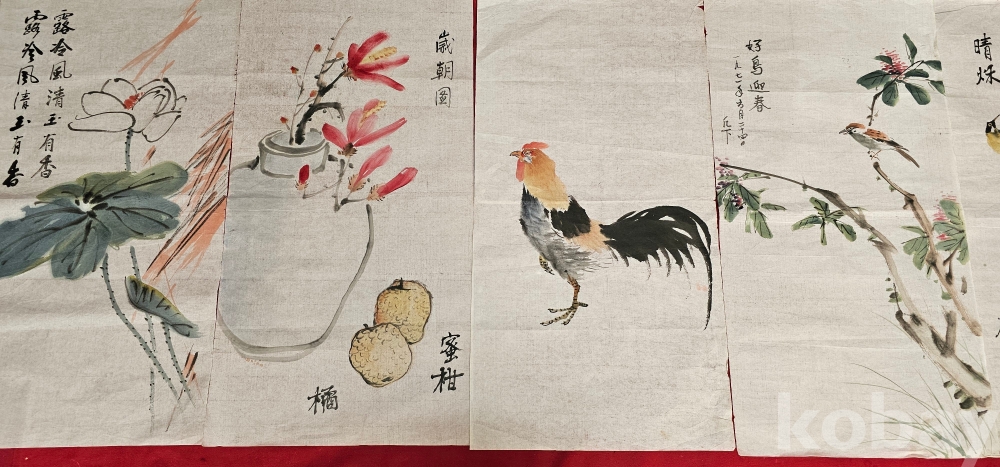 露冷風清玉有香
露冷風清玉有香
歲朝圖
蜜柑
橘
好鳥迎春
一九七一年
晴
kobay